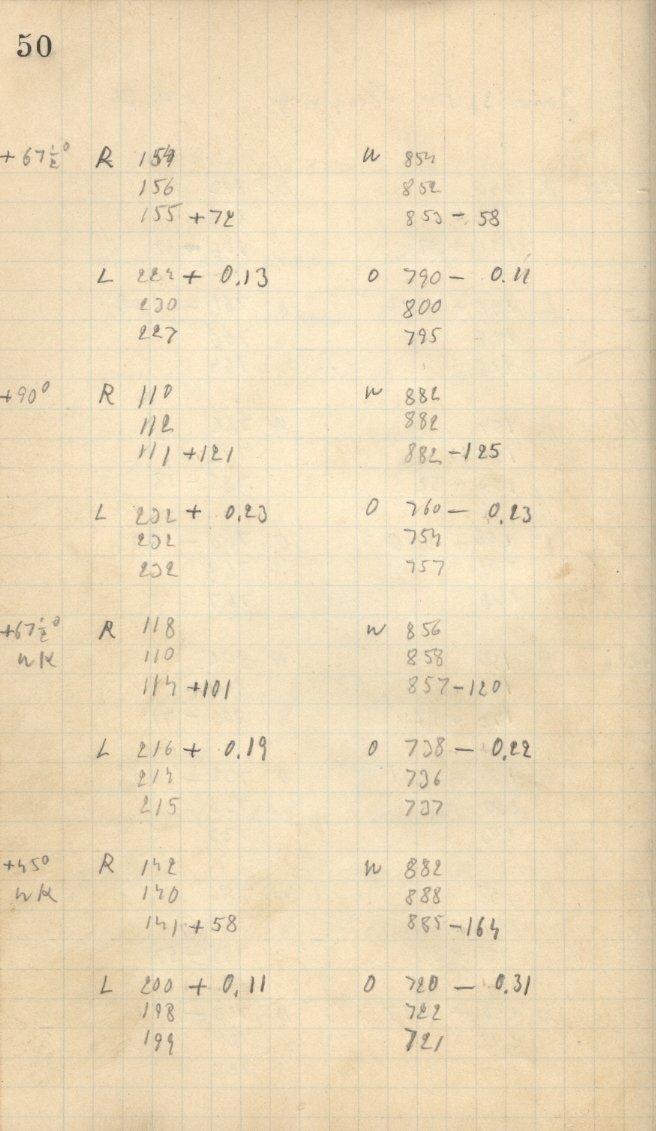 50
+67½° R 154 W 854
156 852
155 +72 853 - 58
L 224 + 0.13 O 790 - 0.11
230 800
227 795
+90° R 110 W 882
112 882
111 +121 882 -125
L 232 + 0.23 O 760 - 0.23
232 754
232 757
+67½° R 118 W 856
WK 110 858
114 +101 857 -120
L 216 + 0.19 O 738 - 0.22
214 736
215 737
+45° R 142 W 882
WK 140 888
141 + 58 885 -164
L 200 + 0.11 O 720 - 0.31
198 722
199 721